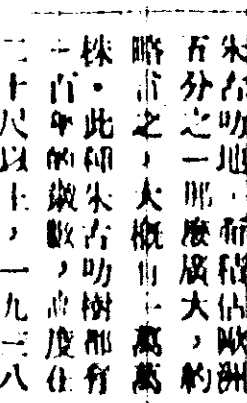 朱古叻地,面積佔歐洲
五分之一那麼廣大,約
略言之,大概有一萬萬
株.此種朱古叻樹都有
一百年的歲數,高度在
二十尺以上,一九三八